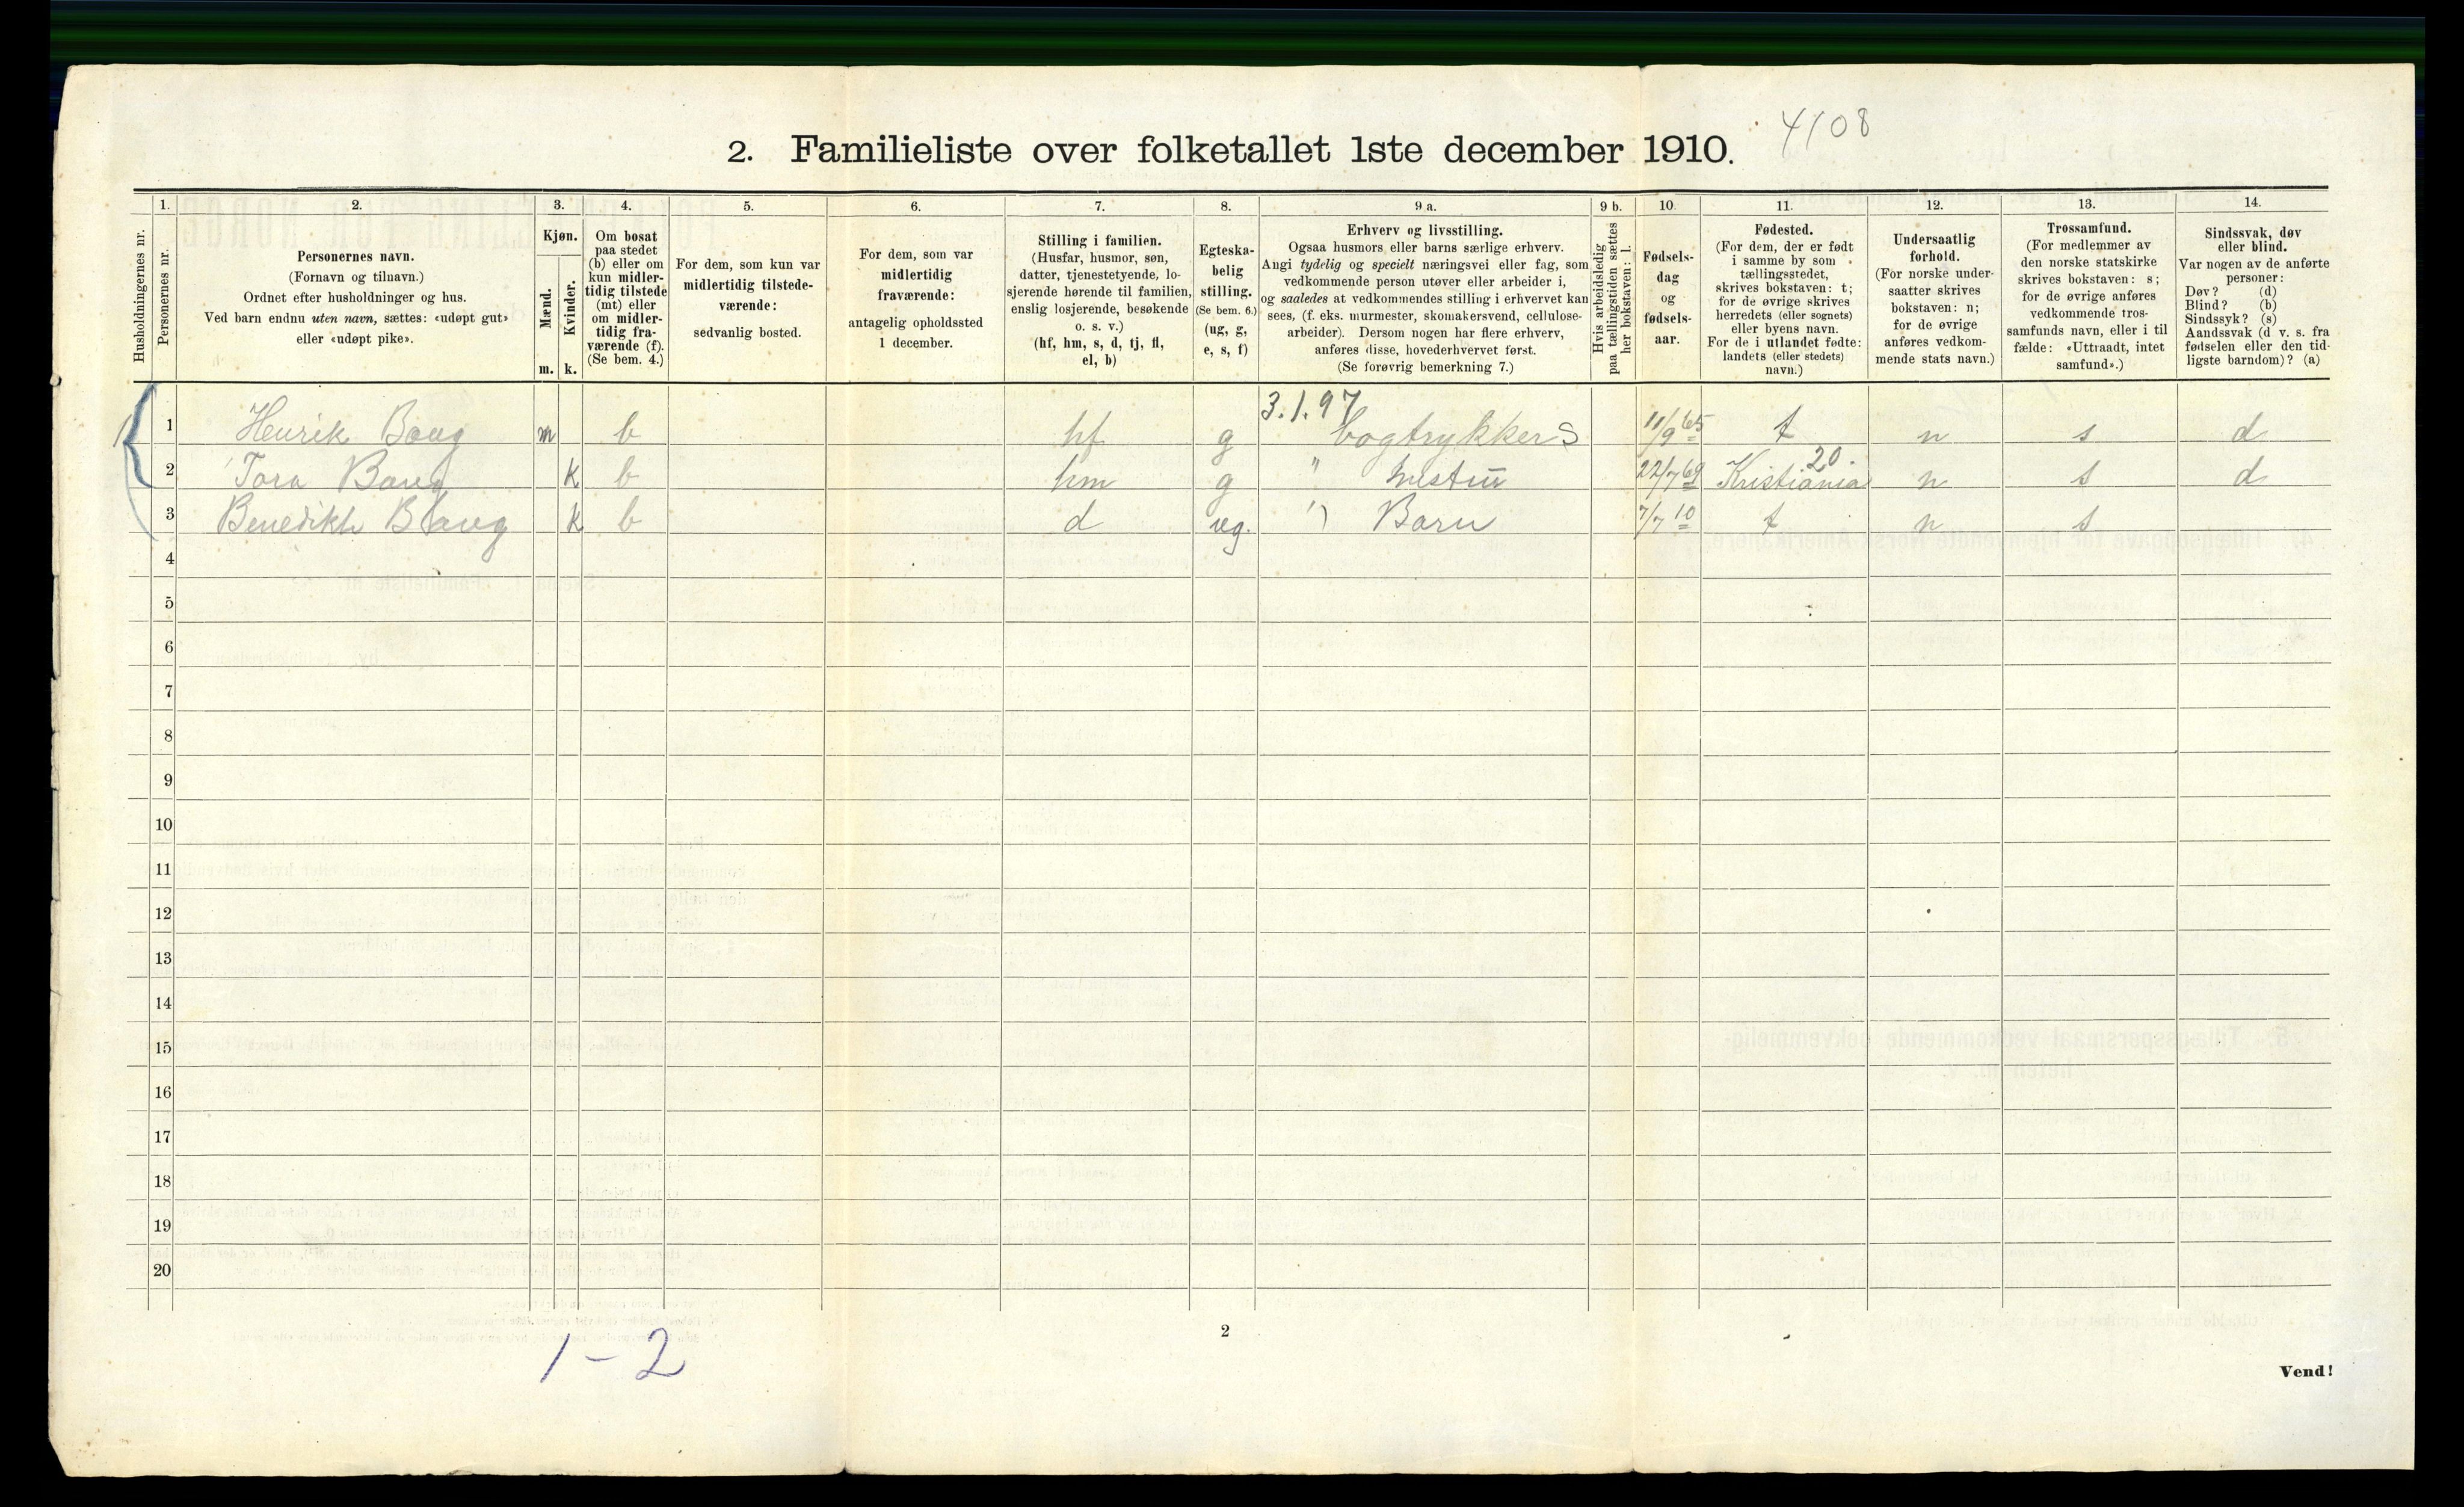 2. Familieliste over folketallet 1ste december 1910.
4108
Husholdningernes nr.
1.
Personernes nr.
2.
Personernes navn.
(Fornavn og tilnavn.)
Ordnet efter husholdninger og hus.
Ved barn endnu uten navn, sættes: «udøpt gut»
eller «udøpt pike».
3.
Kjøn.
Mænd.
Kvinder.
m. k.
4.
Om bosat
paa stedet
(b) eller om
kun midler-
tidig tilstede
(mt) eller
om midler-
tidig fra-
værende (f).
(Se bem. 4.)
5.
For dem, som kun var
midlertidig tilstede-
værende:
sedvanlig bosted.
6.
For dem, som var
midlertidig
fraværende:
antagelig opholdssted
1 december.
7.
Stilling i familien.
(Husfar, husmor, søn,
datter, tjenestetyende, lo-
sjerende hørende til familien,
enslig losjerende, besøkende
o. s. v.)
(hf, hm, s, d, tj, fl,
el, b)
8.
Egteska-
belig
stilling.
(Se bem. 6.)
(ug, g,
e, s, f)
9 a.
Erhverv og livsstilling.
Ogsaa husmors eller barns særlige erhverv.
Angi tydelig og specielt næringsvei eller fag, som
vedkommende person utøver eller arbeider i,
og saaledes at vedkommendes stilling i erhvervet kan
sees, (f. eks. murmester, skomakersvend, cellulose-
arbeider). Dersom nogen har flere erhverv,
anføres disse, hovederhvervet først.
(Se forøvrig bemerkning 7.)
9 b.
Hvis arbeidsledig
paa tællingstiden sættes
her bokstaven: l.
10.
Fødsels-
dag
og
fødsels-
aar.
11.
Fødested.
(For dem, der er født
i samme by som
tællingsstedet,
skrives bokstaven: t;
for de øvrige skrives
herredets (eller sognets)
eller byens navn.
For de i utlandet fødte:
landets (eller stedets)
navn.)
12.
Undersaatlig
forhold.
(For norske under-
saatter skrives
bokstaven: n;
for de øvrige
anføres vedkom-
mende stats navn.)
13.
Trossamfund.
(For medlemmer av
den norske statskirke
skrives bokstaven: s;
for de øvrige anføres
vedkommende tros-
samfunds navn, eller i til
fælde: «Uttraadt, intet
samfund».)
14.
Sindssvak, døv
eller blind.
Var nogen av de anførte
personer:
Døv? (d)
Blind? (b)
Sindssyk? (s)
Aandssvak (d v. s. fra
fødselen eller den tid-
ligste barndom)? (a)
3.1.97
1 Henrik Baug m b hf g bogtrykker S 11/9 65 t n s d
20.
2 Tora Baug k b hm g " 22/7 69 Kristiania n s d
3 Baug k b d ug. " Barn 7/7 10 t n s
4
5
6
7
8
9
10
11
12
13
14
15
16
17
18
19
20
1 - 2
2
Vend!